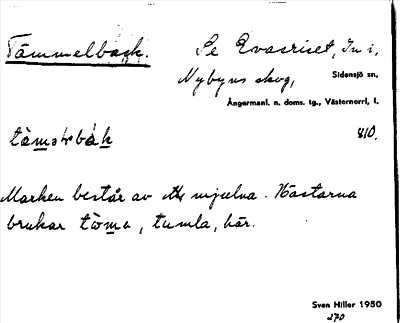 Tämmelback. Se Evasriset, In i,
Nybyns skog, Sidensjö sn,
Ångermanl. n. doms. tg., Västernorrl, l.
810.
Marken består av mjuelna. Hästarna
brukar tö̀ma, tumla, här.
Sven Hiller 1950
270